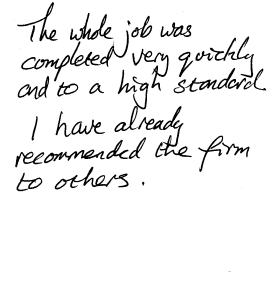 The whole job was
completed very quickly
and to a high standard.
I have already
recommended the firm
to others.